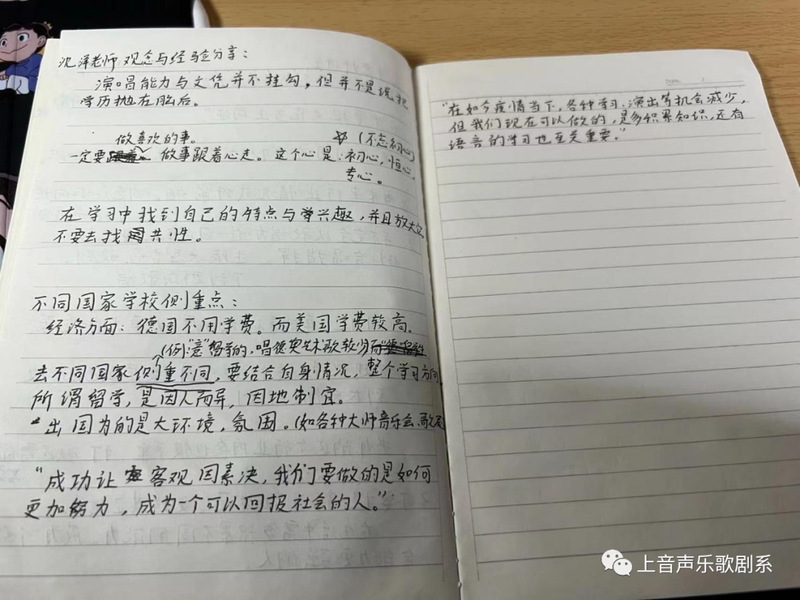 沈洋老师 观念与经验分享：
演唱能力与文凭并不挂勾，但并不是说把
学历抛在脑后。
做喜欢的事。
(不忘初心)
一定要 做事跟着心走。这个心是：初心，恒心，
专心。
在学习中找到自己的特点与兴趣，并且放大它
不要去找共性。
不同国家学校侧重点：
经济方面：德国不用学费。而美国学费较高。
(例："意"留学的，唱德奥艺术歌较少)
去不同国家侧重不同，要结合自身情况，整个学习方向
所谓留学，是因人而异，因地制宜。
出国为的是大环境，氛围。(如各种大师音乐会、歌剧
"成功让客观因素决，我们要做的是如何
更加努力，成为一个可以回报社会的人。"
"在如今疫情当下，各种学习、演出等机会减少，
但我们现在可以做的，是多积累知识，还有
语言的学习也至关重要。"
上音声乐歌剧系